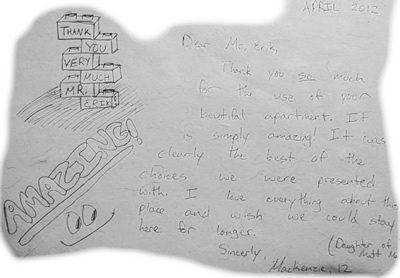 APRIL 2012
THANK
YOU
VERY
MUCH
MR.
ERIK!
AMAZING!
Dear Mr. Erik,
Thank you so much
for the use of your
beautiful apartment. It
is simply amazing! It was
clearly the best of the
choices we were presented
with. I love everything about this
place and wish we could stay
here for longer.
Sincerly,
Mackenzie, 12
(Daughter of
Matt